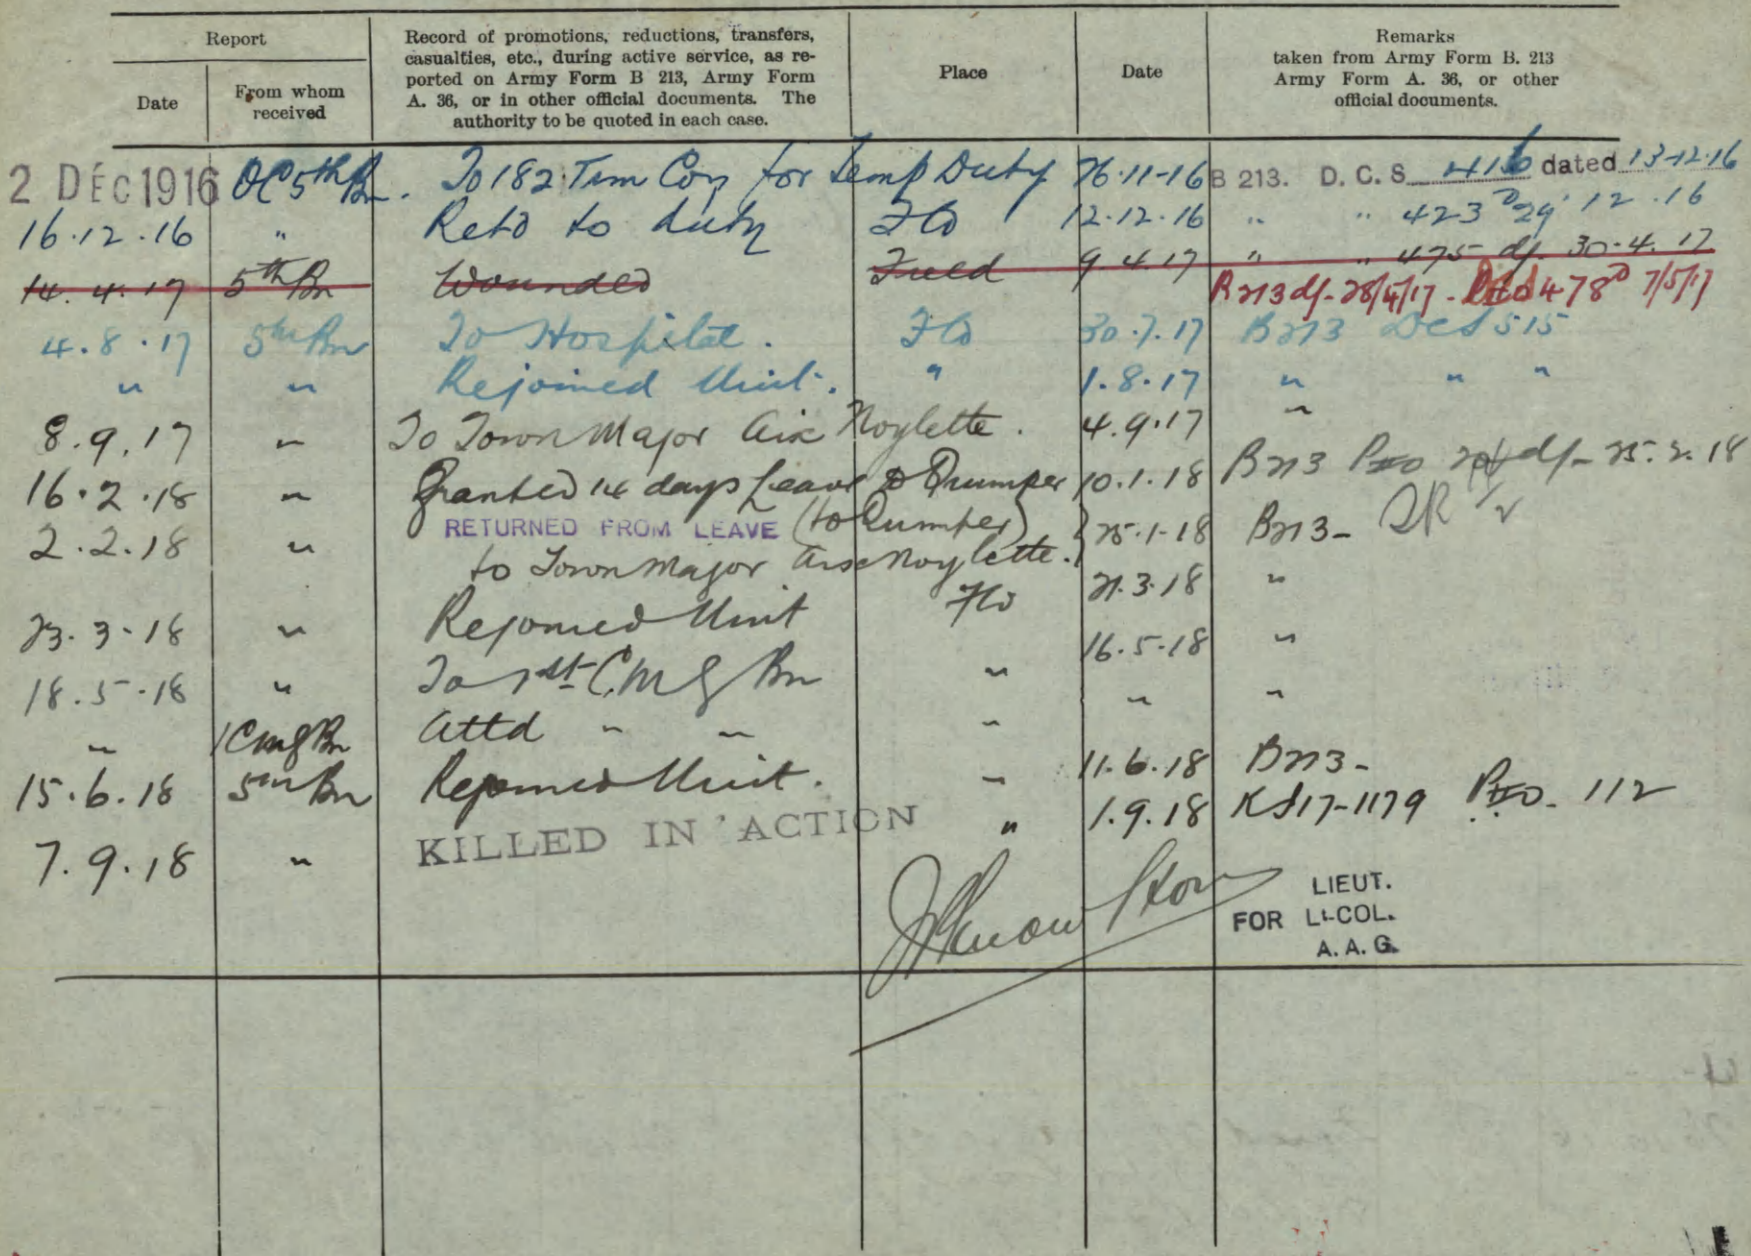 Report
Record of promotions, reductions, transfers, casualties, etc., during active service, as reported on Army Form B 213, Army Form A. 36, or in other official documents. The authority to be quoted in each case.
Place
Date
Remarks
taken from Army Form B. 213
Army Form A. 36, or other
official documents.
Date
From whom
received
2 DEC 1916 OC 5th Bn. To 182 Tun Coy for Temp Duty 26.11-16 B 213. D.C.S. 416 dated 13-12-16
16.12.16 " Retd to duty Fld 12.12.16 " " 423 D 29 12.16
14.4.17 5th Bn Wounded Field 9.4.17 " " 475 d/. 30-4.17
B213 d/- 28/4/17 - 478 D 7/5/17
4.8.17 5th Bn To Hospital. Fld 30.7.17 B213 DCS 515
" " Rejoined Unit. " 1.8.17 " " "
8.9.17 " To Town Major Aix Noylette. 4.9.17 "
16.2.18 " Granted 14 days Leave 10.1.18 B213 PIIO d/- 25.2.18
2.2.18 " RETURNED FROM LEAVE 25.1-18 B213-
to Town Major Aix Noylette.
23.3-18 " Rejoined Unit Fld 21.3.18 "
18.5-18 " To 1st C.M.G Bn " 16.5-18 "
" 1CMGBn Attd " " " " "
15.6.18 5th Bn Rejoined Unit. " 11.6.18 B213-
7.9.18 " KILLED IN ACTION " 1.9.18 KS17-1179 PIIO. 112
LIEUT.
FOR Lt-COL.
A.A.G.